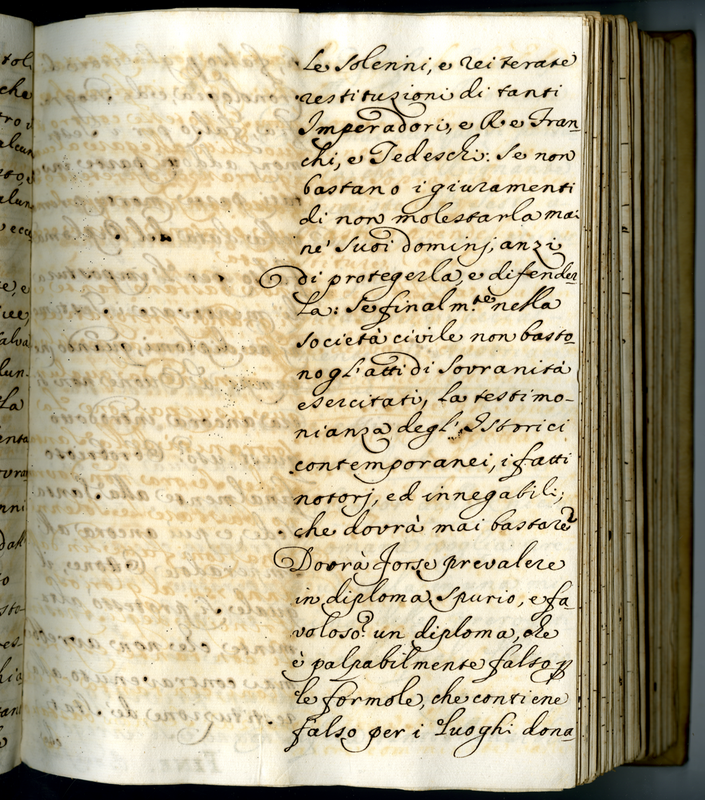 Le solenni, e reiterate
restituzioni di tanti
Imperadori, e Re Fran_
chi, e Tedeschi: Se non
bastano i giuramenti
di non molestarla mai
nè suoi dominj, anzi
di proteggerla, e difender_
la: Se finalm.te nella
società civile non basto_
no gl'atti di Sovranità
esercitati, la testimo-
nianza degl'Istorici
contemporanei, i fatti
notorj, ed innegabili;
che dovrà mai bastare?
Dovrà forse prevalere
in diploma spurio, e fa_
voloso? un diploma, che
è palpabilmente falso p
le formole, che contiene
falso per i luoghi dona_